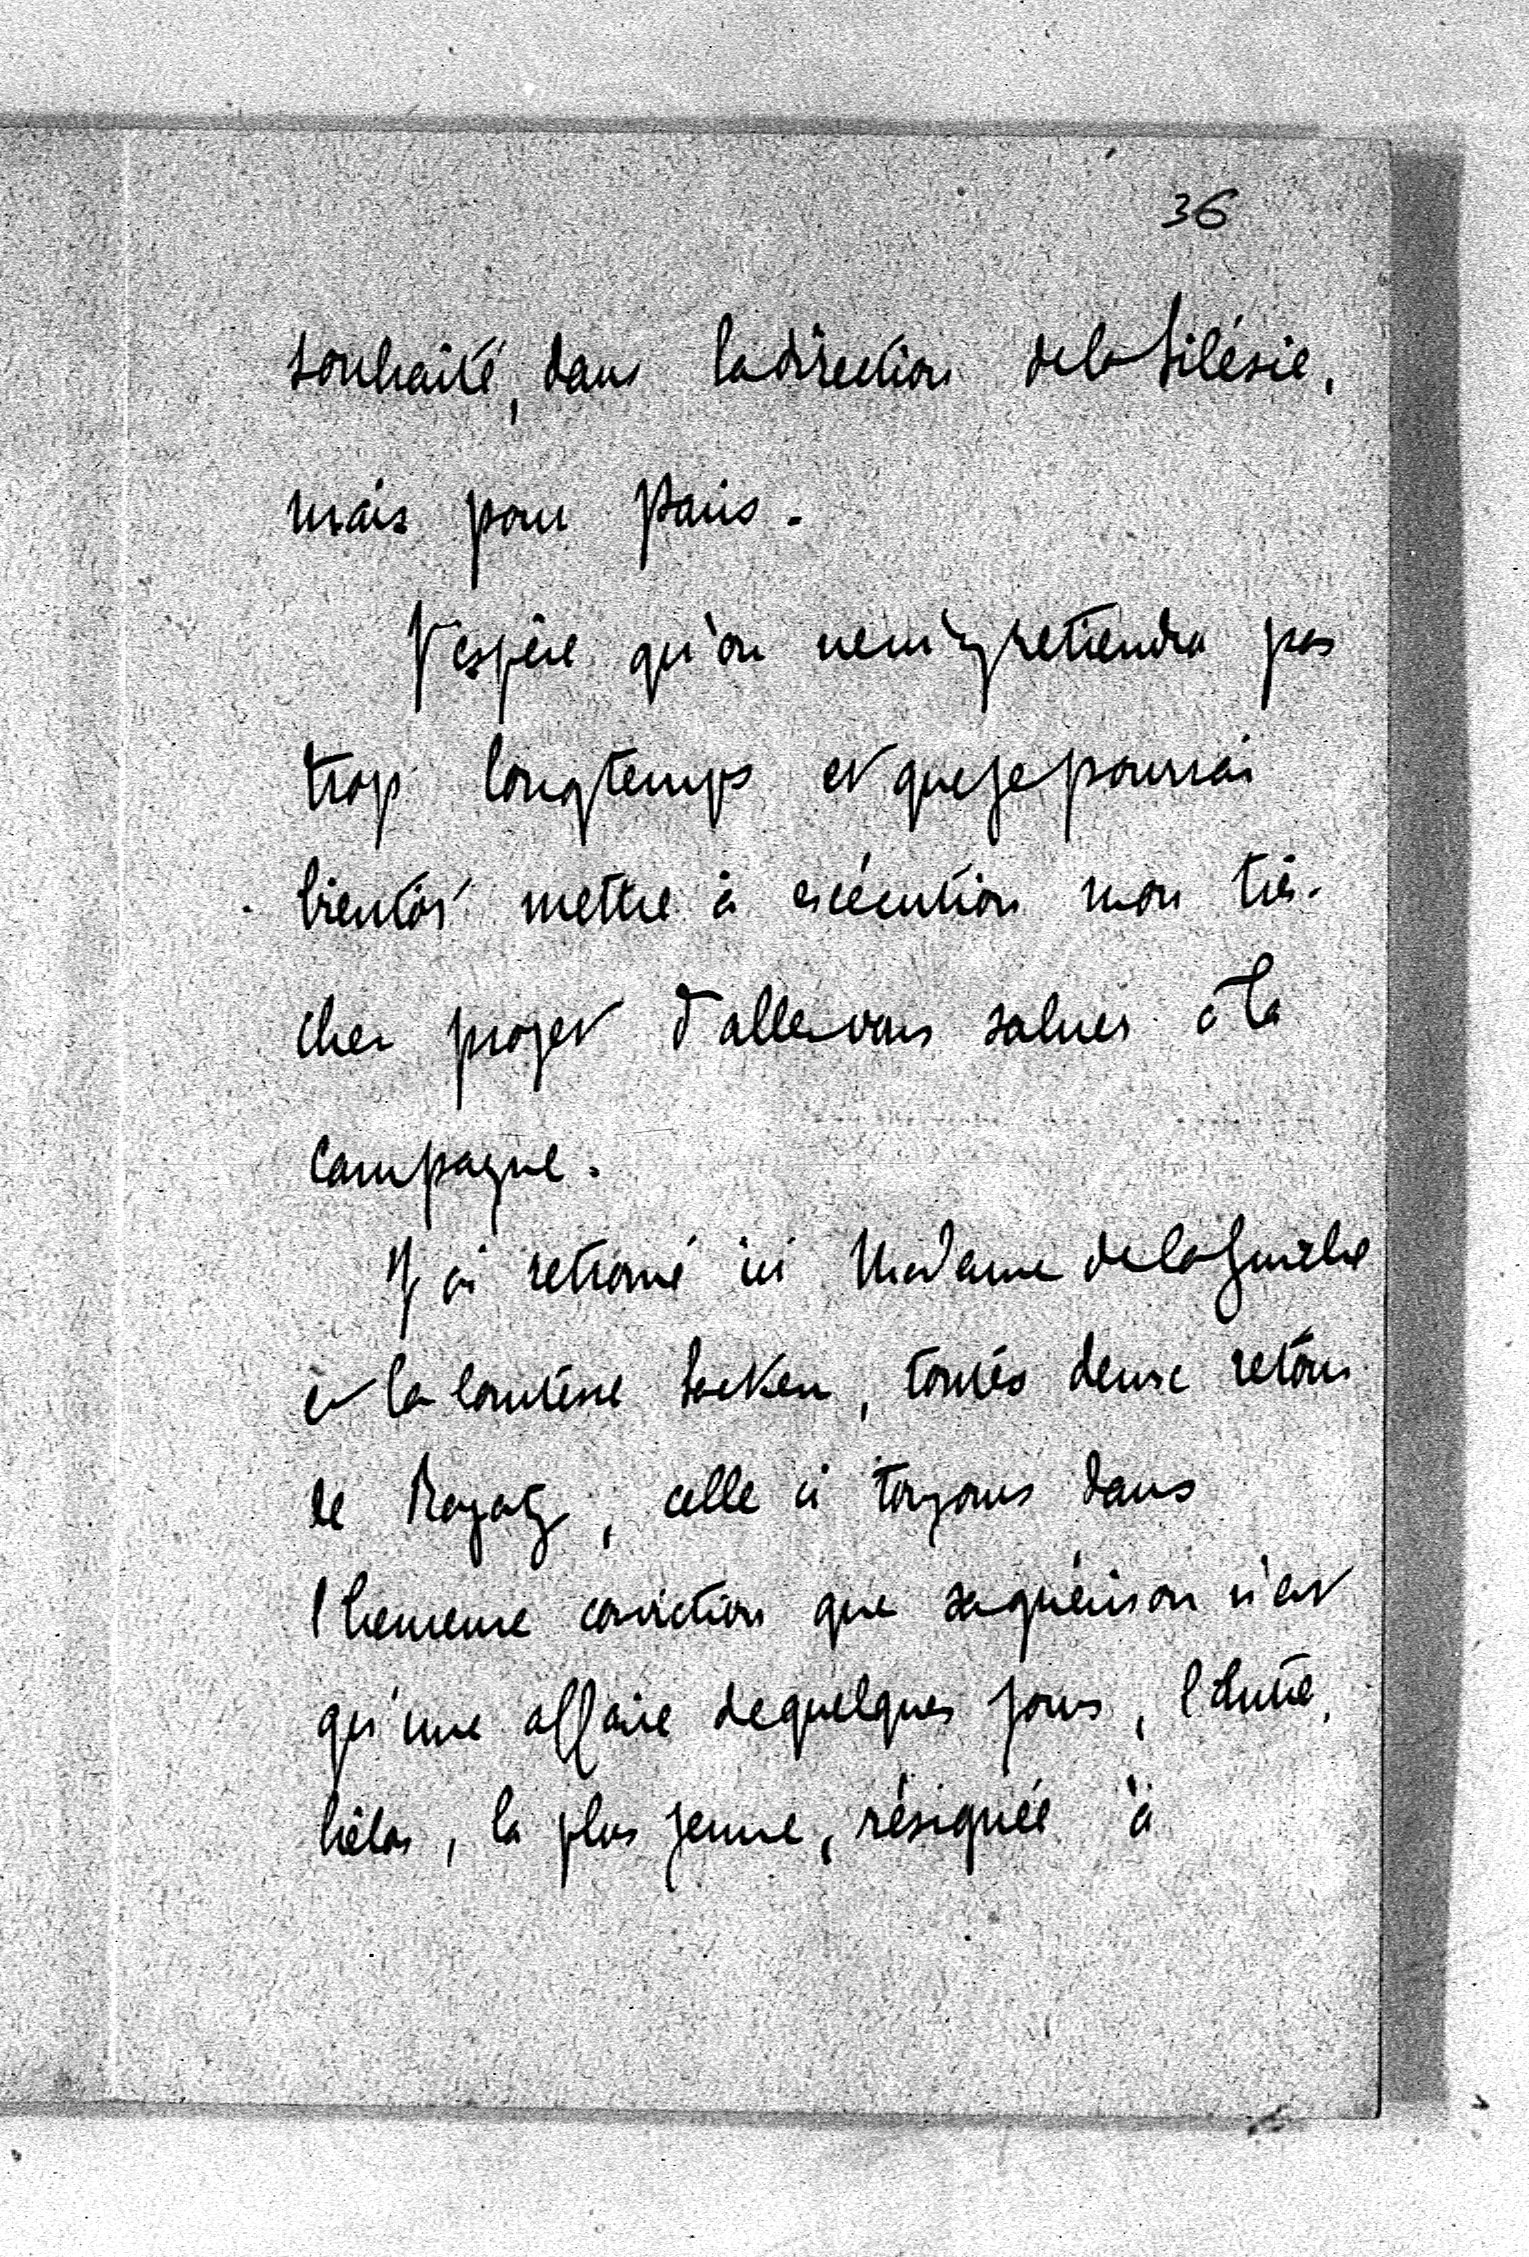 36
souhaité, dans la direction de la Silésie,
mais pour Paris.
J'espère qu'on ne m'y retiendra pas
trop longtemps et que je pourrai
bientôt mettre à exécution mon très-
cher projet d'aller vous saluer à la
campagne.
J'ai retrouvé ici Madame de la
et la comtesse, toutes deux retour
de Royat, celle ci toujours dans
l'heureuse conviction que sa guérison n'est
qu'une affaire de quelques jours, l'autre,
hélas, la plus jeune, résignée à